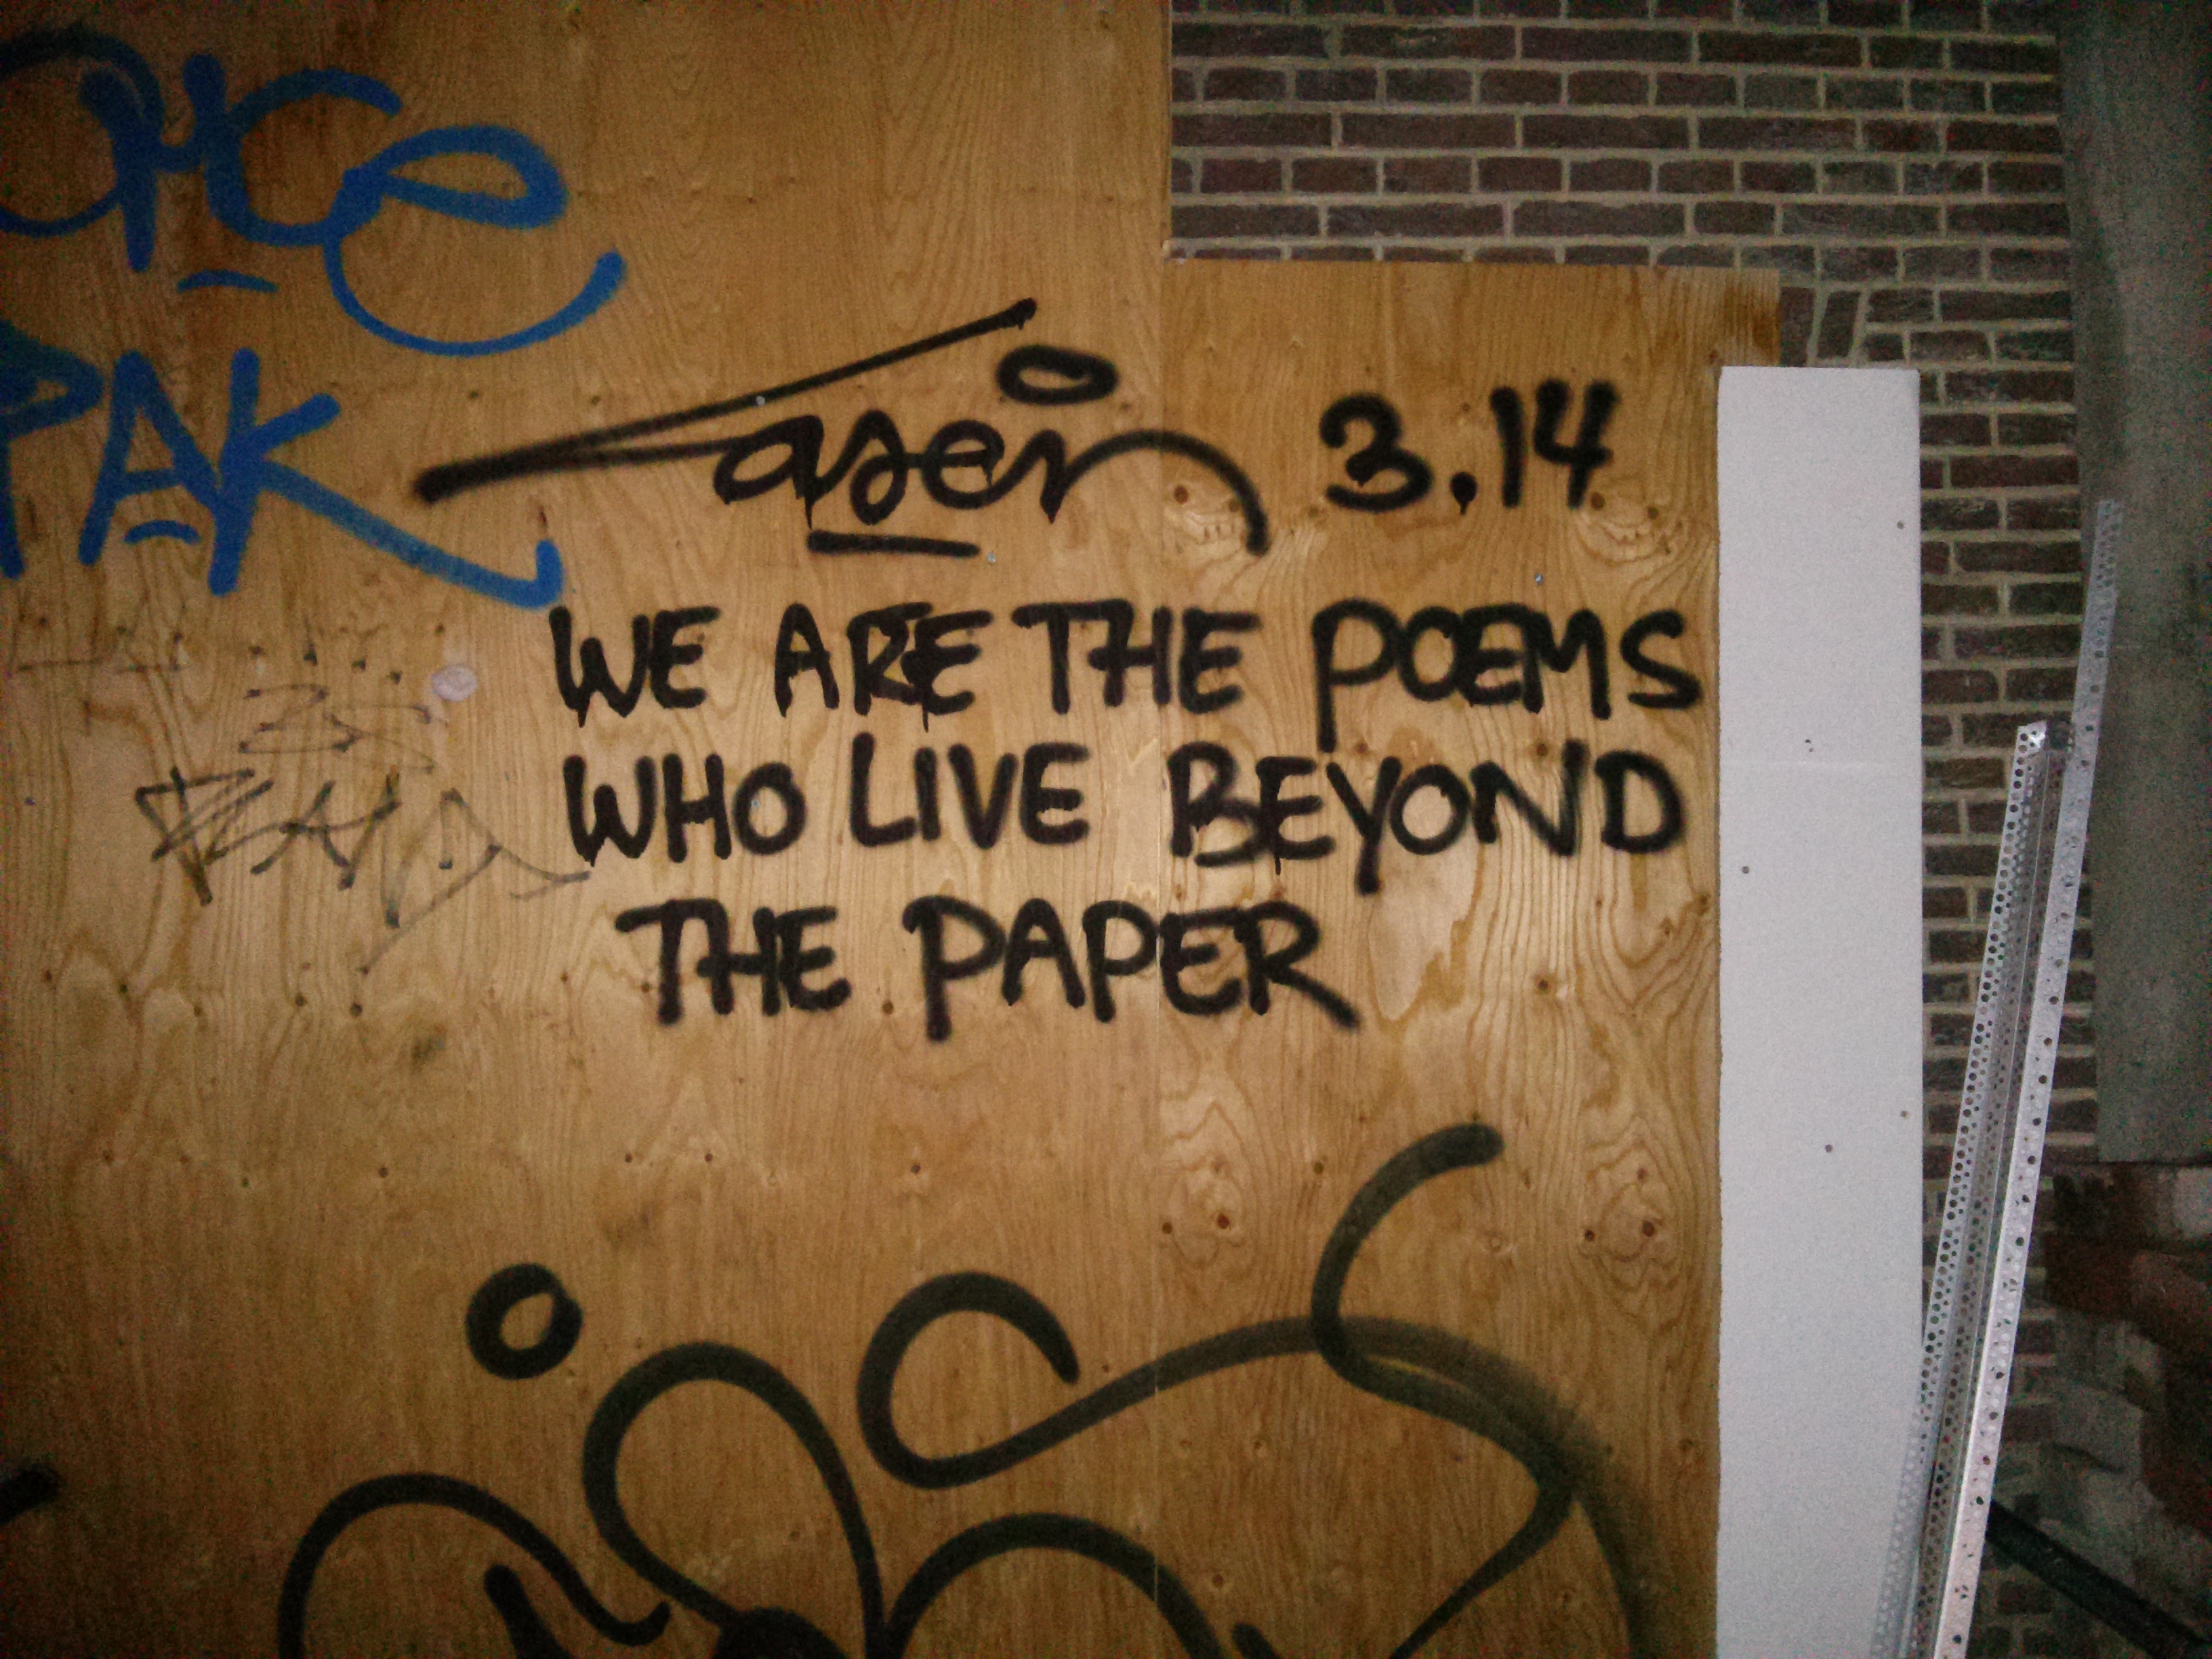 PAK
Laser 3.14
WE ARE THE POEMS
WHO LIVE BEYOND
THE PAPER